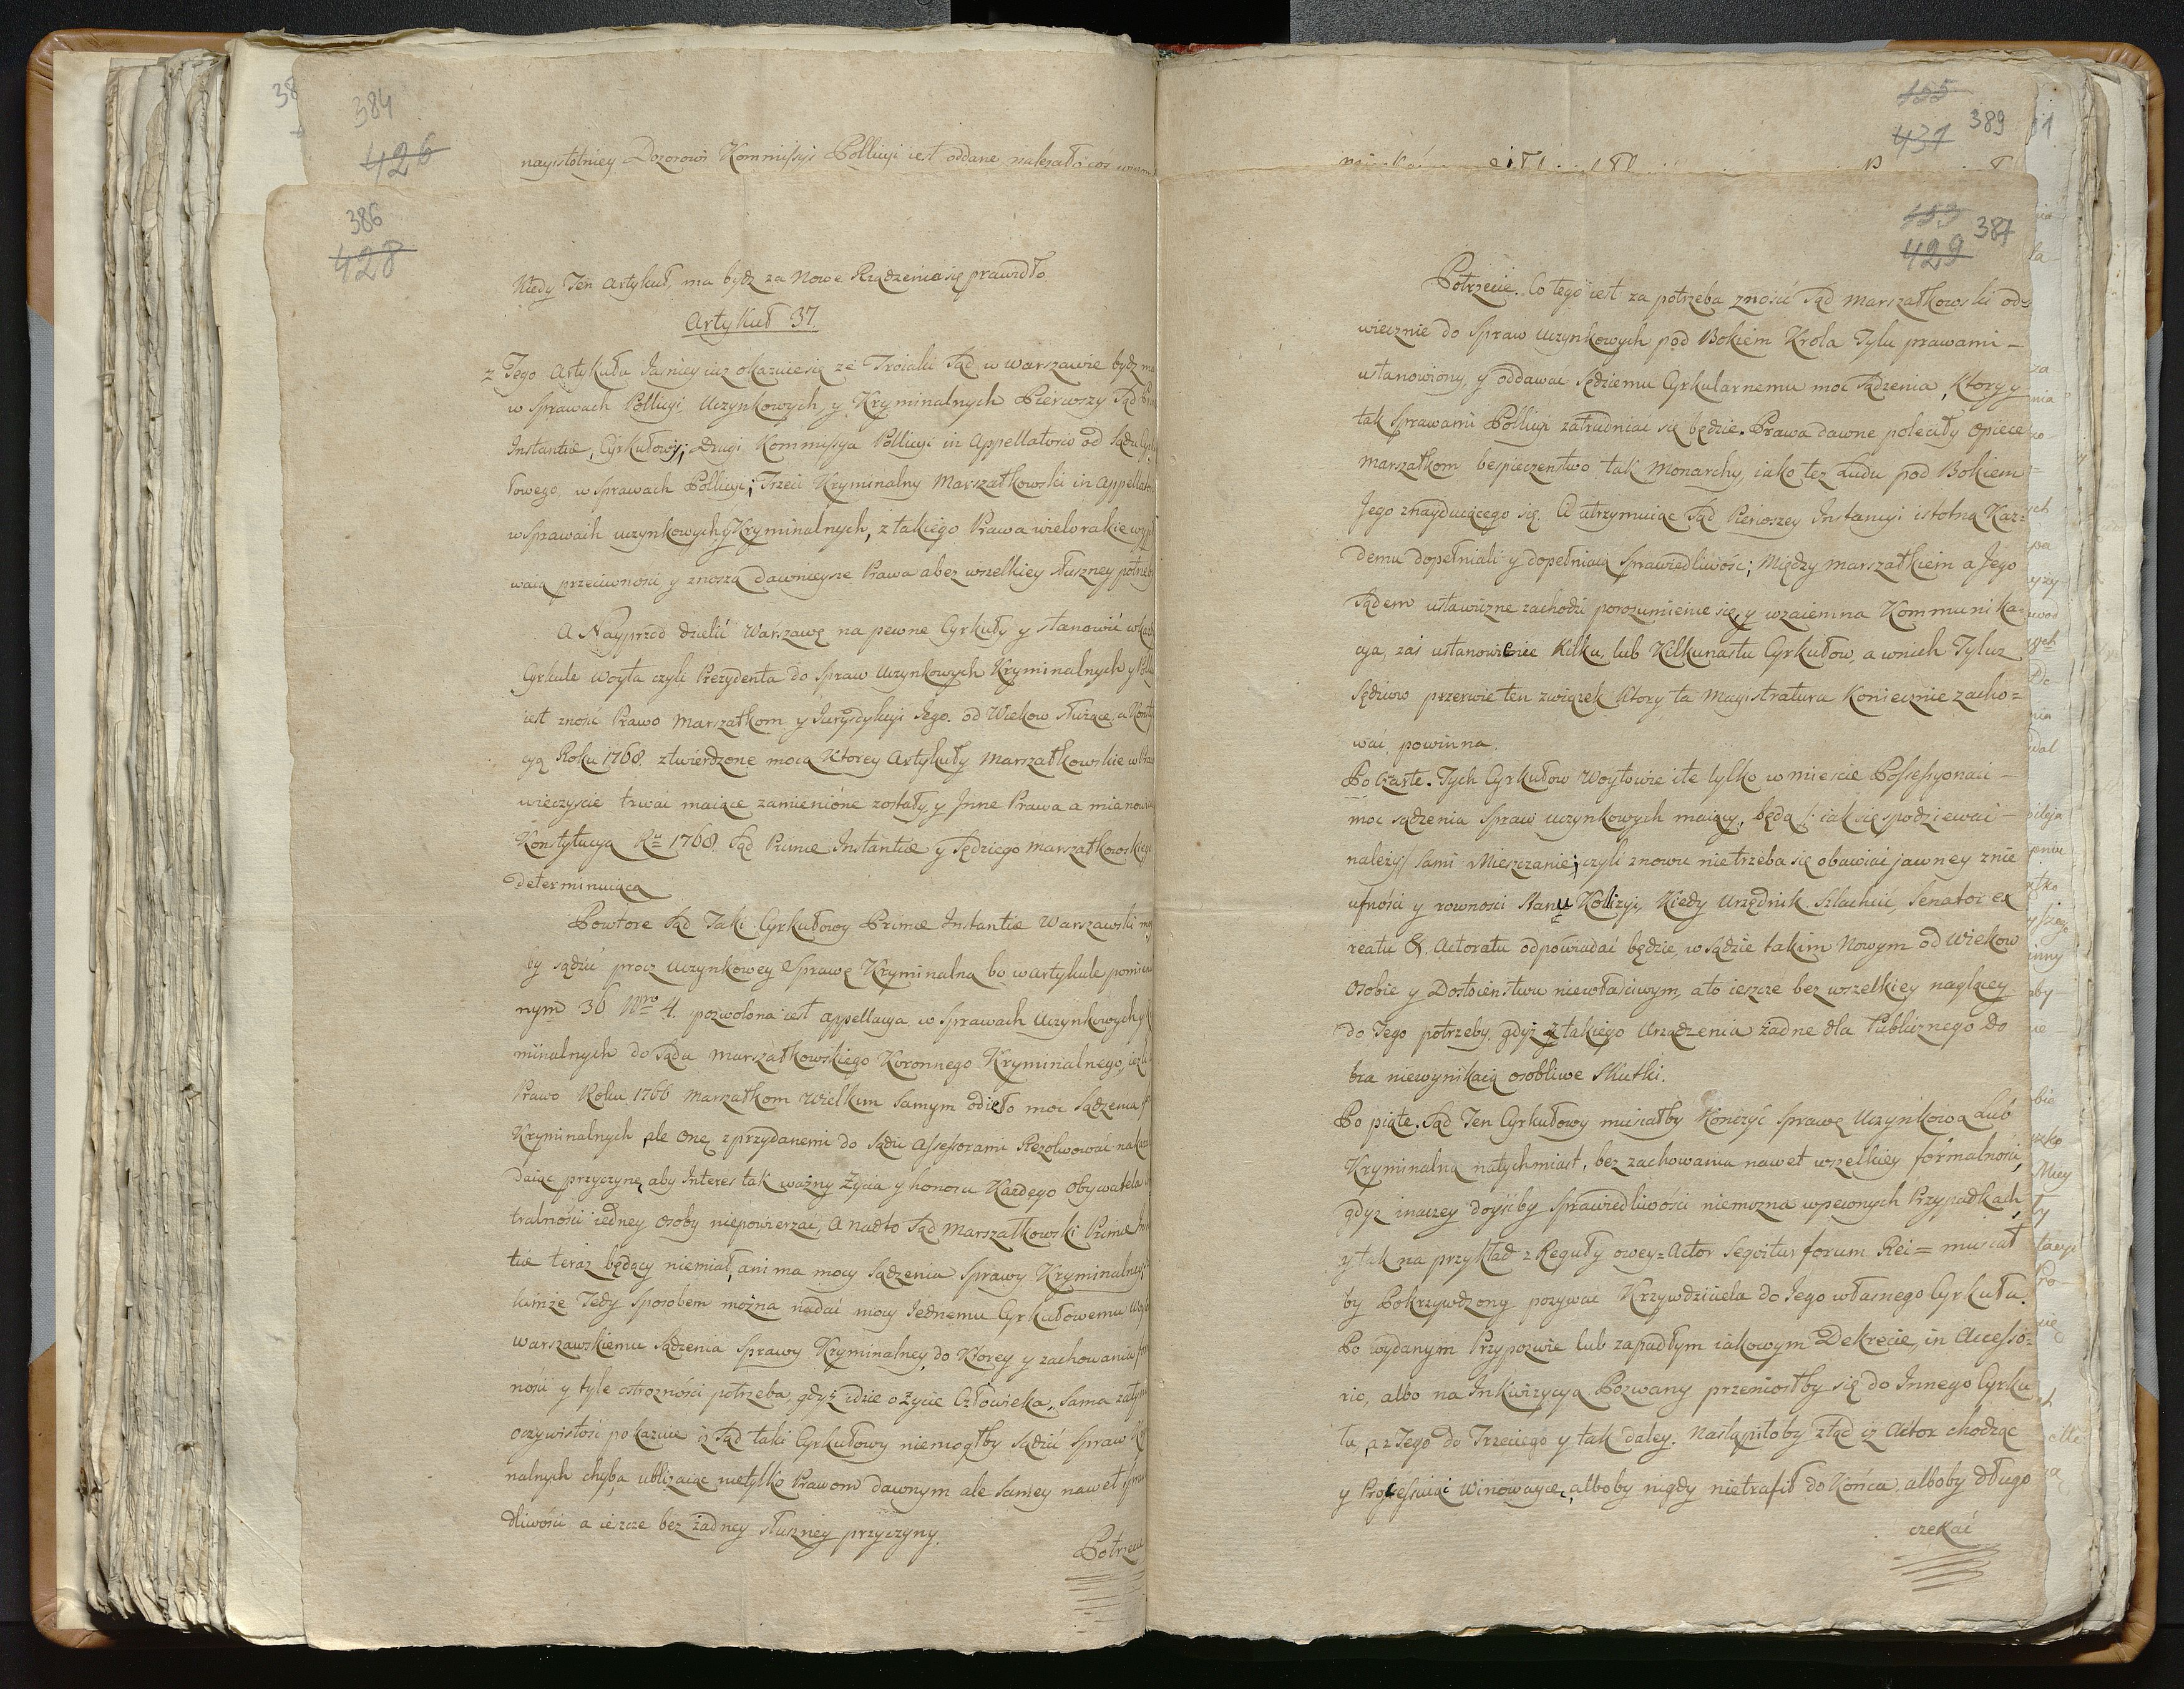 38
384
426
nayistotniey Dozorowi Kommissyi Pollicyi iest oddane
386
428
Kiedy Ten Artykuł, ma bydz za Nowe Rządzenia się prawidło
Artykuł 37.
z Tego Artykułu Jaśniey iuz okazuie się ze Troiaki Sąd w Warszawie bydz ma
w Sprawach Pollicyi, Uczynkowych, y Kryminalnych Pierwszy Sąd
Instantiæ, Cyrkułowy; Drugi Kommissya Pollicyi in Appellatorio od Sądu
łowego w Sprawach Pollicyi; Trzeci Kryminalny Marszałkowski in
w Sprawach uczynkowych y Kryminalnych, z takiego Prawa wielorakie
waią przeciwności y znoszą dawnieysze Prawa a bez wszelkiey słuszney
A Nayprzod dzielić Warszawę na pewne Cyrkuły y stanowić w
Cyrkule Woyta czyli Prezydenta do Spraw Uczynkowych Kryminalnych y
iest znosić Prawo Marszałkom y Jurysdykcyi Jego od Wiekow służące, a
cyą Roku 1768. ztwierdzone mocą Ktorey Artykuły Marszałkowskie w
wieczyście trwać maiące zamienióne zostały, y Jnne Prawa a
Konstytucya Ru 1768. Sąd Primæ Instantiæ y Sędziego Marszałkowskiego
determinuiącą
Powtore Sąd Taki Cyrkułowy Primæ Instantiæ Warszawski
by sądzić procz Uczynkowey Sprawę Kryminalną bo w artykule
nym 36 Nro 4. pozwolona iest appellacya w Sprawach Uczynkowych y
minalnych do Sądu Marszałkowskiego Koronnego Kryminalnego,
Prawo Roku 1766 Marszałkom Wielkim samym odięło moc Sądzenia
Kryminalnych, ale one z przydanemi do Sądu Assessorami Rezolwować
daiąc przyczynę, aby Interes tak ważny Życia y honoru Każdego Obywatela
tralności iedney osoby niepowierzać, A nadto Sąd Marszałkowski Primæ
tiæ teraz będący niemiał, ani ma mocy Sądzenia Sprawy Kryminalney
kimże Tedy sposobem można nadać mocy Jednemu Cyrkułowemu
Warszawskiemu sądzenia Sprawy Kryminalney, do Ktorey y zachowania
ności y tyle ostrożności potrzeba, gdyż idzie o życie Człowieka, Sama
oczywistość pokazuie iż Sąd taki Cyrkułowy niemogłby sądzić Spraw
nalnych chyba ubliżaiąc nietylko Prawom dawnym ale samey nawet
dliwości a ieszcze bez żadney słuszney przyczyny.
Potrzecie
155
431
389
153
429
387
Potrzecie. Co tego iest za potrzeba znosić Sąd Marszałkowski od=
wiecznie do Spraw Uczynkowych pod Bokiem Krola Tylu prawami –
ustanowiony, y oddawać Sędziemu Cyrkularnemu moc Sądzenia, Ktory y
tak Sprawami Pollicyi zatrudniać się będzie. Prawa dawne poleciły opiece
Marszałkom bespieczenstwo tak Monarchy, iako tez Ludu pod Bokiem
Jego znayduiącego się. Ci utrzymuiąc Sąd Pierwszey Instancyi istotną Kaz=
demu dopełniali y dopełniaią Sprawiedliwość; Między Marszałkiem a Jego
Sądem ustawiczne zachodzi porozumienie się, y wzaiemna Kommunika=
cya, zaś ustanowienie Kilku, lub Kilkunastu Cyrkułow, a wnich Tyluz
Sędziow przerwie ten związek Ktory ta Magistratura Koniecznie zacho=
wać powinna.
Po Czarte. Tych Cyrkułow Woytowie ile tylko w miescie Possessyonaci –
moc sądzenia Spraw uczynkowych maiący, będą /: iak się spodziewać –
należy :/ Sami Mieszczanie; czyli znowu nie trzeba się obawiać jawney znie
ufności y rowności Stanu Kolizyi, Kiedy Urzędnik Szlachcic, Senator ex
reatu &. Actoratu odpowiadać będzie, w Sądzie takim Nowym od Wiekow
Osobie y Dostoieństwu niewłaściwym, a to ieszcze bez wszelkiey nagłey
do Tego potrzeby, gdyż z takiego Urządzenia żadne dla Publicznego Do
bra niewynikaią osobliwe Skutki.
Po piąte. Sąd Ten Cyrkułowy musiałby Kończyć Sprawę Uczynkową Lub
Kryminalną natychmiast, bez zachowania nawet wszelkiey formalności,
gdyz inaczey doyść by Sprawiedliwości niemozna wpewnych Przypadkach,
y tak na przykład z Reguły owey = Actor Seqvitur forum Rei = musiał
by Pokrzywdzony pozywać Krzywdziciela do Jego własnego Cyrkułu.
Po wydanym Przypozwie lub zapadłym iakowym Dekrecie, in Accesso=
rio, albo na Inkwizycyą. Pozwany przeniosłby się do Innego Cyrku
łu, a z Jego do Trzeciego y tak daley. Nastąpiłoby ztąd iż Actor chodząc
y Processuiąc Winowaycę, alboby nigdy nietrafił do Końca, alboby długo
czekać